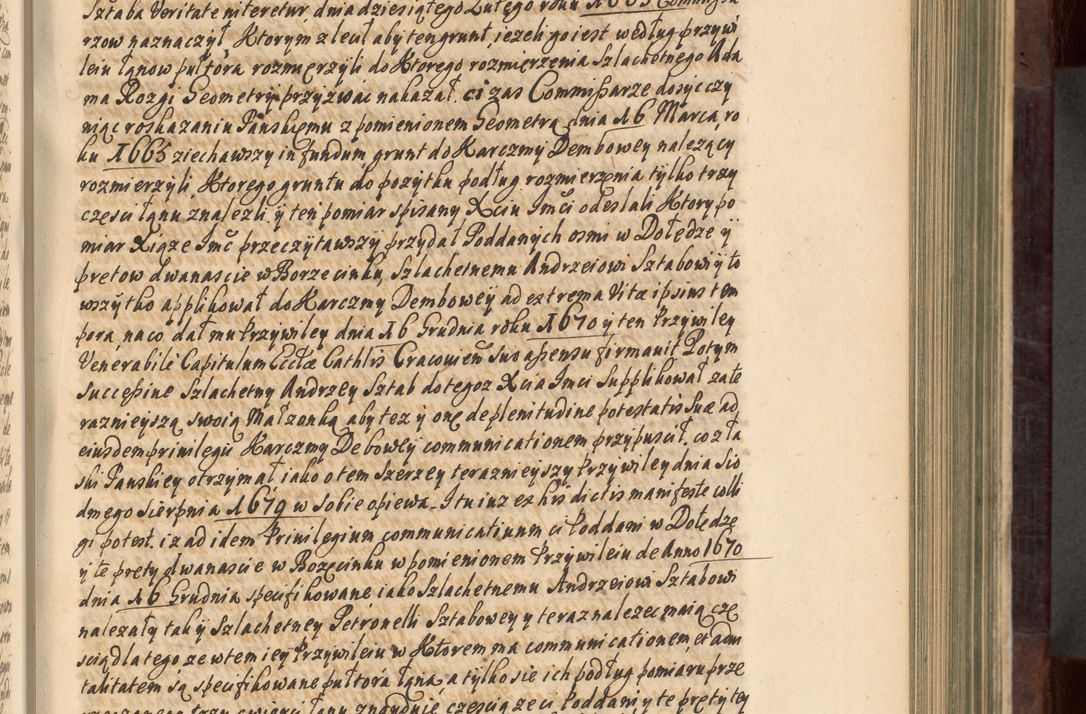 Sztaba Veritate niteretur, dnia dziesiątego Lutego roku 1665 Commissa
rzow naznaczył Ktorym zlecił aby ten grunt, iezeli go iest według przywi
leiu łanow pułtora rozmierzyli do Ktorego rozmierzenia Szlachetnego Ada
ma Rozgi Geometry przyzwac nakazał. ci zas Commissarze dosyc czy
niąc roskazaniu Panskiemu z pomienionem Geometrą dnia 16 Marca, ro
ku 1665 ziechawszy in fundum grunt do Karczmy Dembowey nalezący
rozmierzyli, Ktorego gruntu do pozytku podług rozmierzenia tylko trzy
częsci łanu znalezli. y ten pomiar spisany Xciu Imci odesłali Ktory po
miar Xiąze Imć przeczytawszy przydał Poddanych osmi w Dołędze y
prętow dwanascie w Borzecinku, Szlachetnemu Andrzeiowi Sztabowi y to
wszytko applikował do Karczmy Dembowey ad extrema Vitæ ipsius tem
pora, na co dał mu Przywiley dnia 16 Grudnia roku 1670 y ten Przywiley
Venerabile Capitulum Ecclæ Cathlis Cracovien̄ suo assensu firmavit. Potym
successive Szlachetny Andrzey Sztab do tegoz Xcia Imci supplikował za te
raznieyszą swoią Małzonką aby tez y onę de plenitudine potestatis suæ ad
eiusdem privilegii Karczmy Debowey communicationem przypuscił, co z ła
ski Panskiey otrzymał iako o tem szerzey terazniejszy Przywiley dnia Sio
dmego Sierpnia 1679 w sobie opiewa. I tu iuz ex his dictis manifeste colli
gi potest. iz ad idem Privilegium communicatiuum ci Poddani w Dołędze
y te pręty dwanascie w Bozęcinku w pomienionem Przywileiu de Anno 1670
dnia 16 Grudnia specifikowane iako Szlachetnemu Andrzeiowi Sztabowi
nalezały tak y Szlachetney Petronelli Sztabowey y teraz nalezec maią czę
scią dlatego ze w tem iey Przywileiu w Ktorem ma communicationem, et adui
talitatem są specifikowane pułtora łana, a tylko sie ich podług pomiaru prze
trzy łanu znayduie częscią ze ci Poddani y te pręty tey